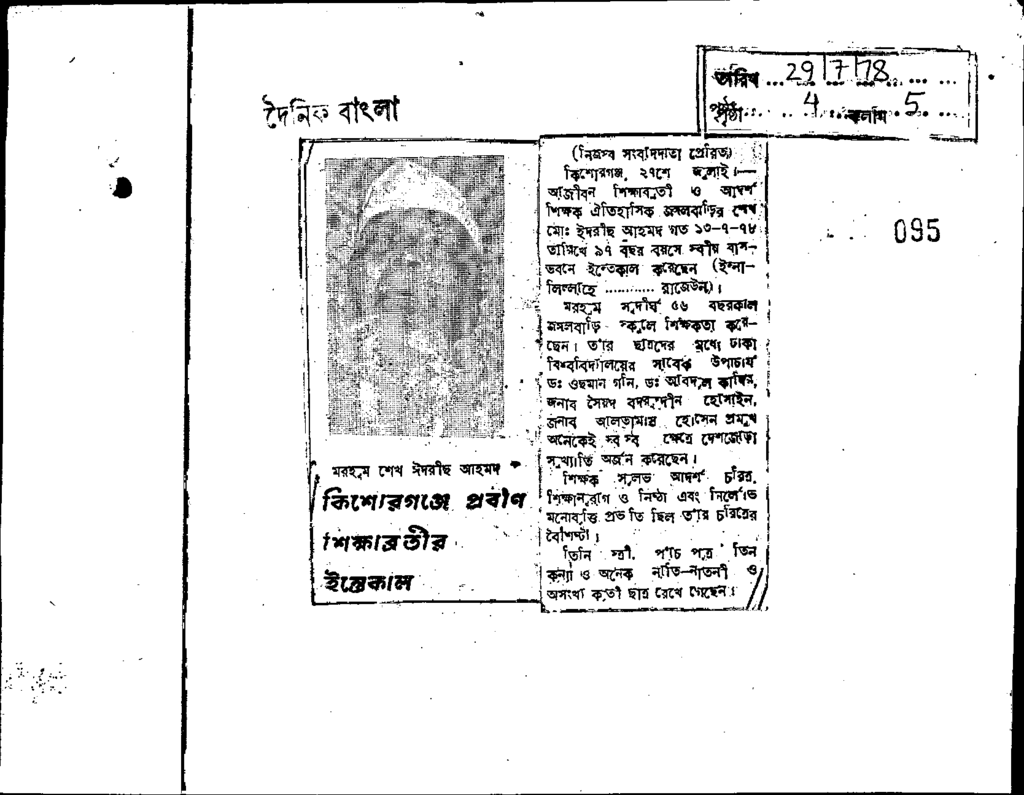 দৈনিক বাংলা
তারিখ ... 29/7/78 ... ...
পৃষ্ঠা ... 4 ... কলাম . 5 ...
095
মরহুম শেখ ঈদরীছ আহমদ
কিশোরগঞ্জে প্রবীণ
শিক্ষাব্রতীর
ইন্তেকাল
(নিজস্ব সংবাদদাতা প্রেরিত)
কিশোরগঞ্জ, ২৭শে জুলাই।—
আজীবন শিক্ষাব্রতী ও আদর্শ
শিক্ষক ঐতিহাসিক জঙ্গলবাড়ির শেখ
মোঃ ইদরীছ আহমদ গত ১৩-৭-৭৮
তারিখে ৯৭ বছর বয়সে স্বীয় বাস-
ভবনে ইন্তেকাল করেছেন (ইন্না-
লিল্লাহে ............ রাজেউন)।
মরহুম সুদীর্ঘ ৫৬ বছরকাল
জঙ্গলবাড়ি স্কুলে শিক্ষকতা করে-
ছেন। তাঁর ছাত্রদের মধ্যে ঢাকা
বিশ্ববিদ্যালয়ের সাবেক উপাচার্য
ডঃ ওছমান গনি, ডঃ আবদুল কাদির,
জনাব সৈয়দ বদরুদ্দীন হোসাইন,
জনাব আলতামাস হোসেন প্রমুখ
অনেকেই স্ব স্ব ক্ষেত্রে দেশজোড়া
সুখ্যাতি অর্জন করেছেন।
শিক্ষক সুলভ আদর্শ চরিত্র,
শিক্ষানুরাগ ও নিষ্ঠা এবং নির্লোভ
মনোবৃত্তি প্রভৃতি ছিল তাঁর চরিত্রের
বৈশিষ্ট্য।
তিনি স্ত্রী, পাঁচ পুত্র তিন
কন্যা ও অনেক নাতি-নাতনী ও
অসংখ্য কৃতী ছাত্র রেখে গেছেন।